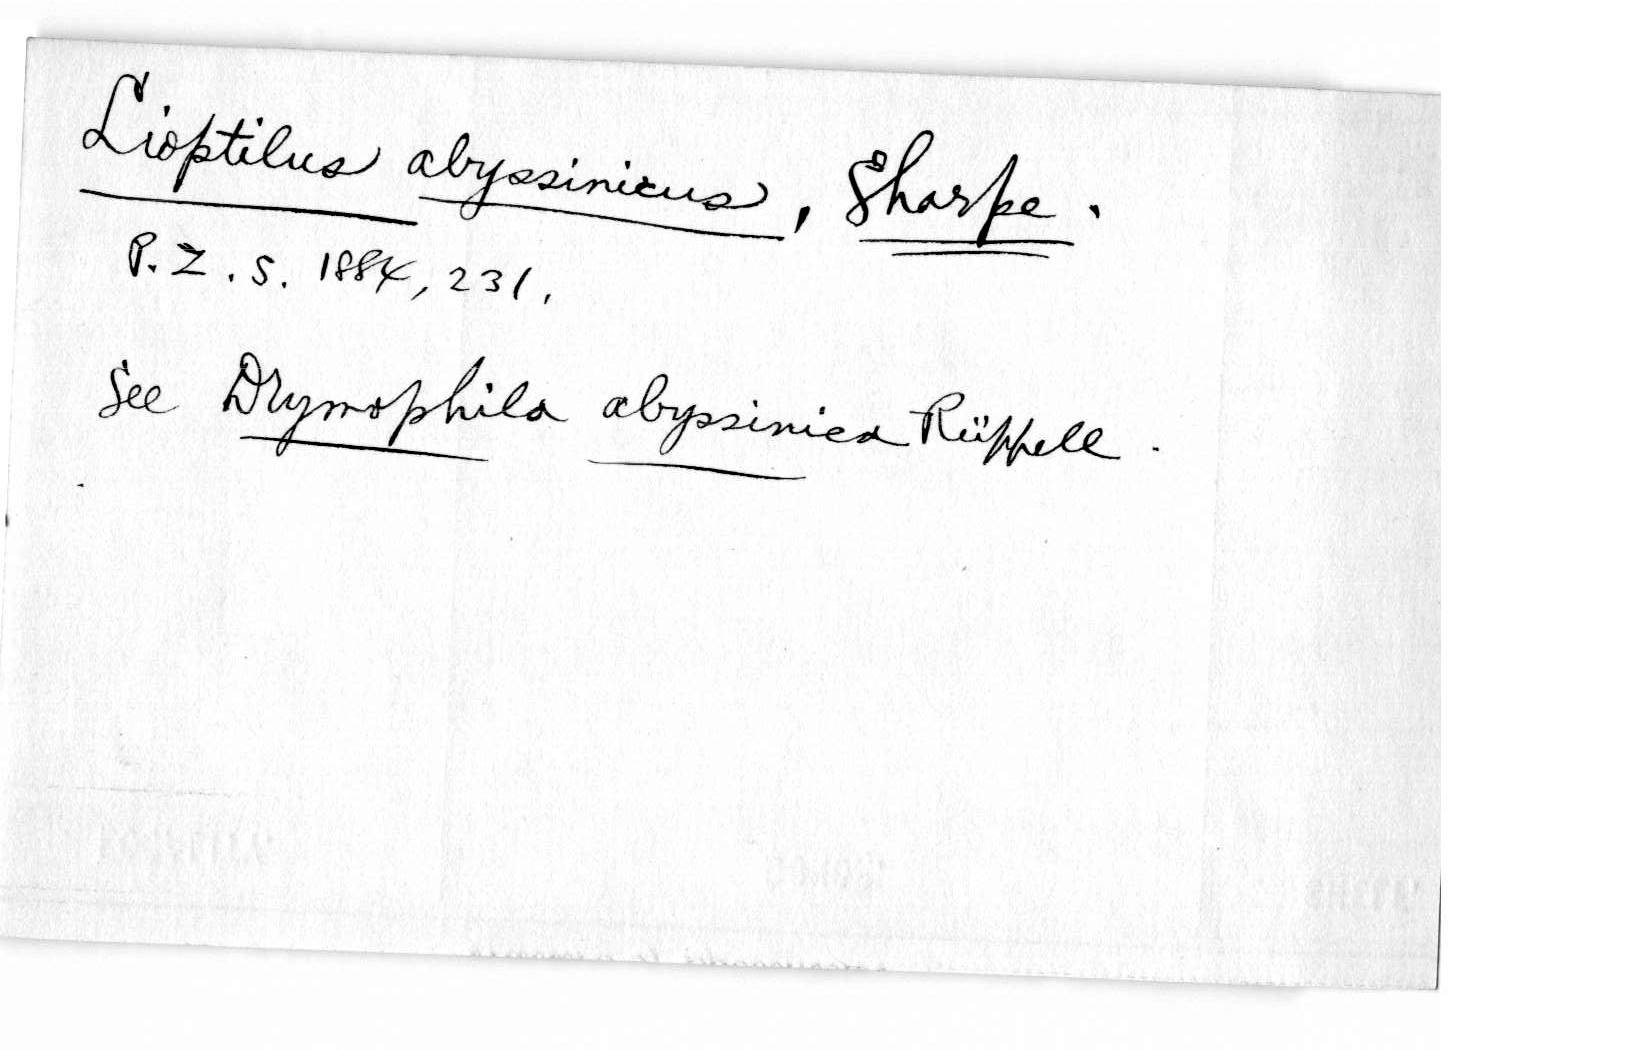 Lioptilus abyssinicus, Sharpe.
P.Z.S. 1884, 231.
See Drymophila abyssinica Rüppell.